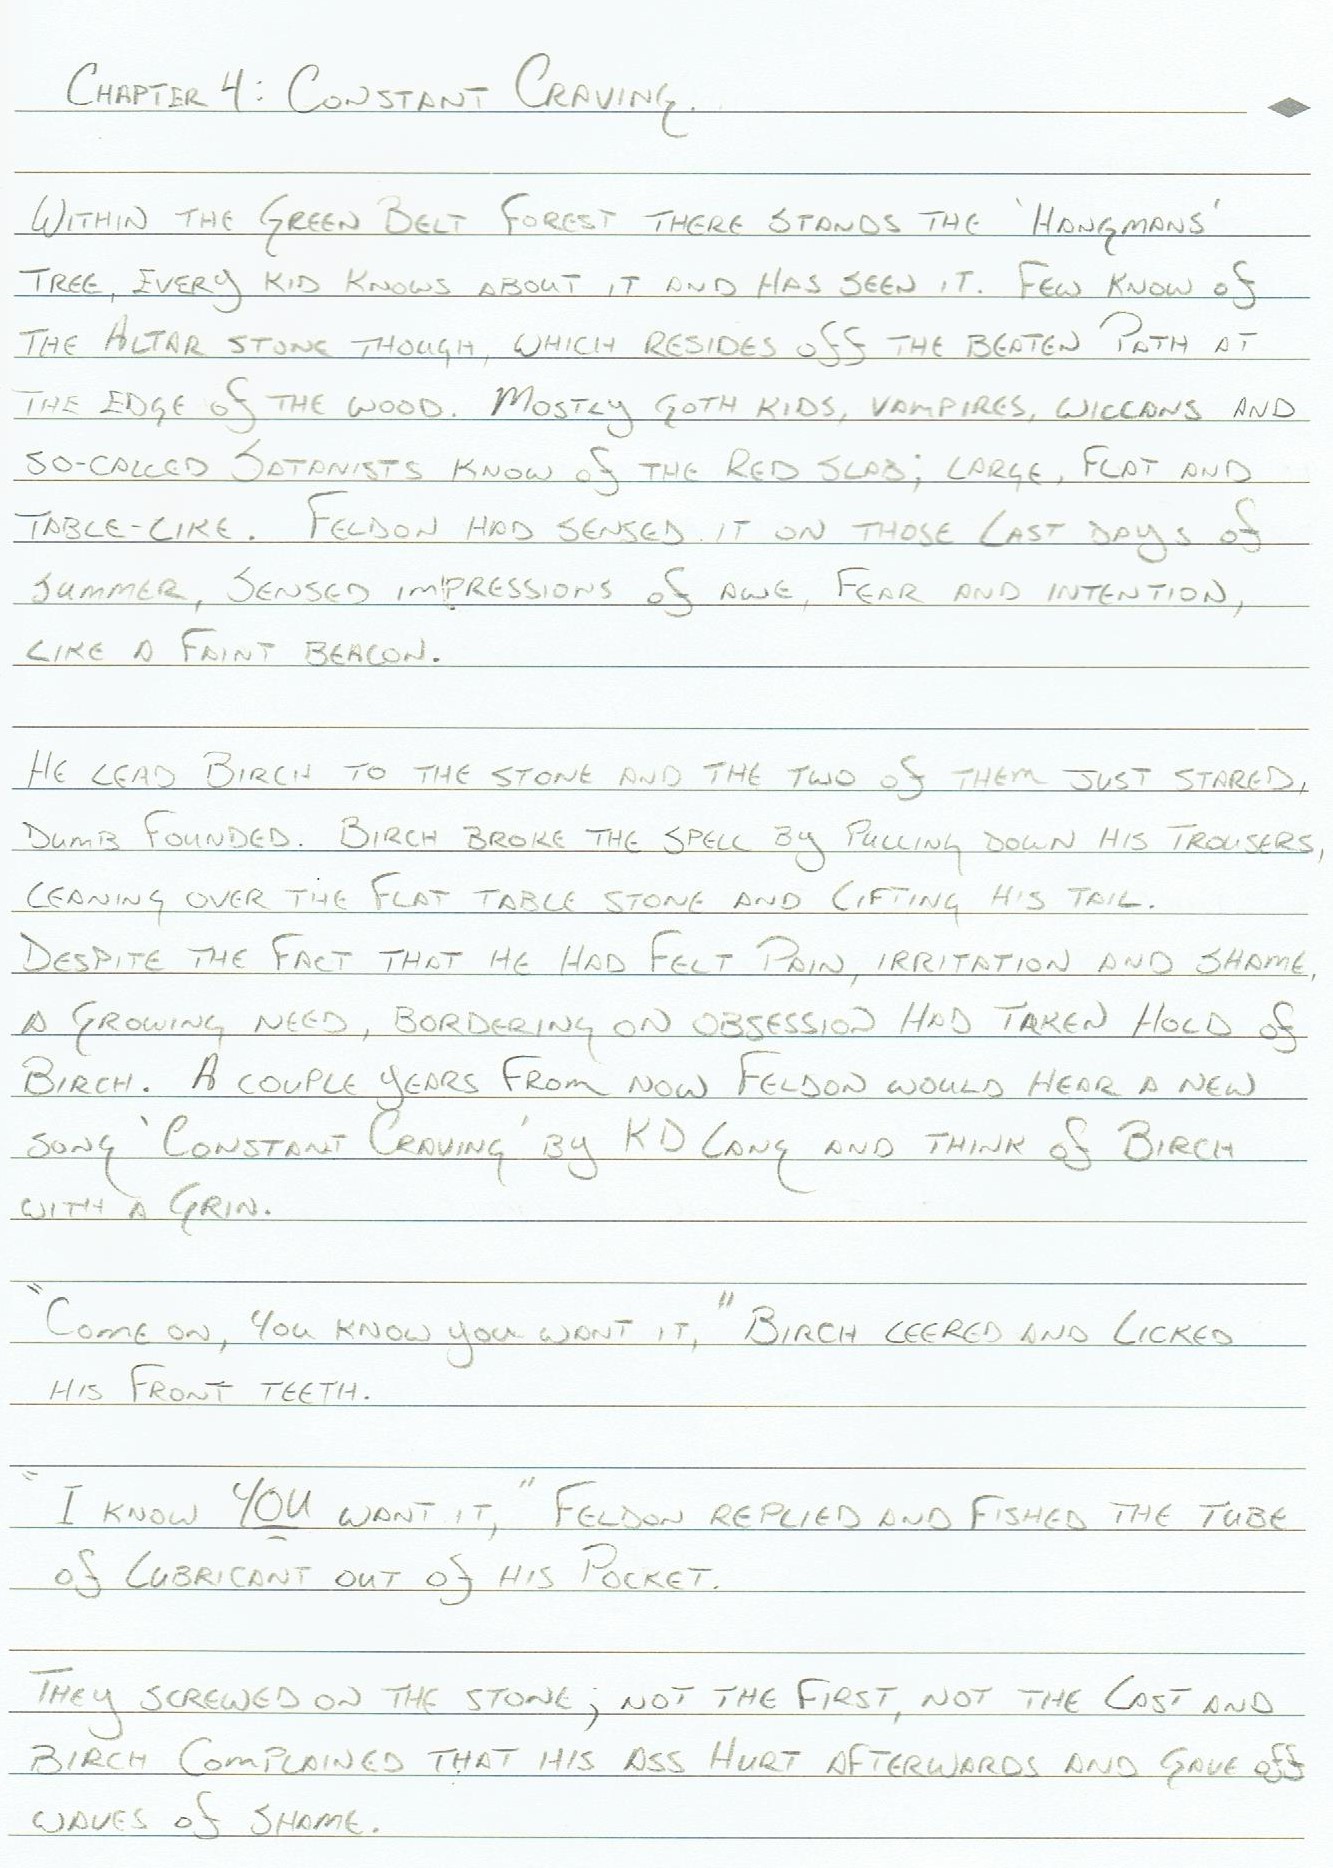 Chapter 4: Constant Craving.
Within the Green Belt Forest there stands the 'Hangmans'
tree, every kid knows about it and has seen it. Few know of
the Altar stone though, which resides off the beaten path at
the edge of the wood. Mostly goth kids, vampires, wiccans and
so-called Satanists know of the red slab; large, flat and
table-like. Feldon had sensed it on those last days of
summer, sensed impressions of awe, fear and intention,
like a faint beacon.
He lead Birch to the stone and the two of them just stared,
dumb founded. Birch broke the spell by pulling down his trousers,
leaning over the flat table stone and lifting his tail.
Despite the fact that he had felt pain, irritation and shame,
a growing need, bordering on obsession had taken hold of
Birch. A couple years from now Feldon would hear a new
song 'Constant Craving' by KD Lang and think of Birch
with a grin.
"Come on, you know you want it," Birch leered and licked
his front teeth.
"I know YOU want it," Feldon replied and fished the tube
of lubricant out of his pocket.
They screwed on the stone; not the first, not the last and
Birch complained that his ass hurt afterwards and gave off
waves of shame.